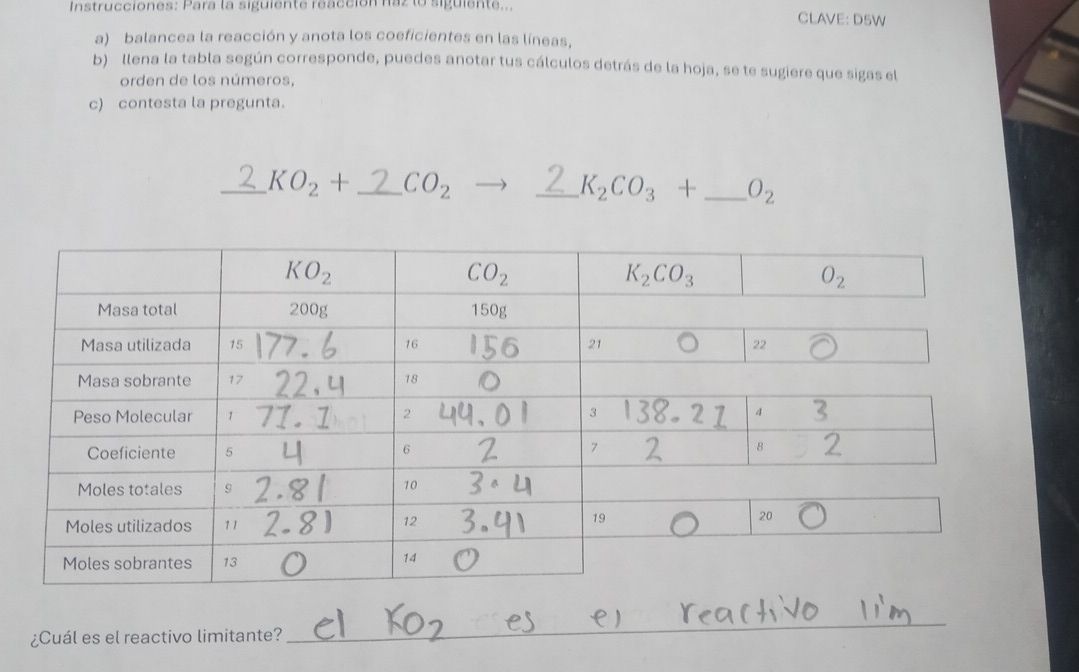 Instrucciones: Para la siguiente reacción haz lo siguiente...
CLAVE: D5W
a) balancea la reacción y anota los coeficientes en las líneas,
b) llena la tabla según corresponde, puedes anotar tus cálculos detrás de la hoja, se te sugiere que sigas el
orden de los números,
c) contesta la pregunta.
2 KO₂ + 2 CO₂ → 2 K₂CO₃ + ___O₂
KO₂ CO₂ K₂CO₃ O₂
Masa total 200g 150g
Masa utilizada 15 177.6 16 156 21 0 22 0
Masa sobrante 17 22.4 18 0
Peso Molecular 1 71.1 2 44.01 3 138.21 4 3
Coeficiente 5 4 6 2 7 2 8 2
Moles totales 9 2.81 10 3.4
Moles utilizados 11 2.81 12 3.41 19 0 20 0
Moles sobrantes 13 0 14 0
¿Cuál es el reactivo limitante? el KO₂ es el reactivo lim